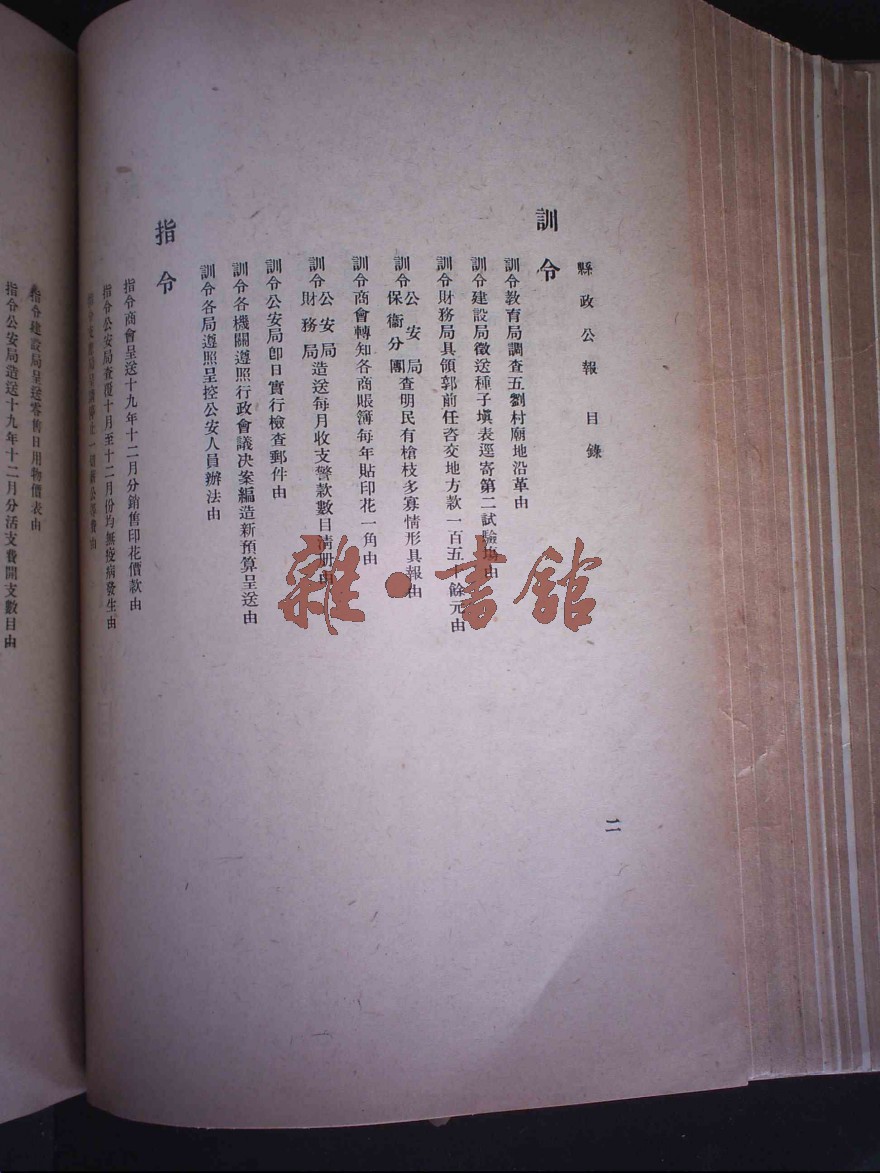 縣政公報 目錄
二
訓令
訓令教育局調查五劉村廟地沿革由
訓令建設局徵送種子填表逕寄第二試驗場由
訓令財務局具領郭前任咨交地方款一百五十餘元由
訓令公安局保衞分團查明民有槍枝多寡情形具報由
訓令商會轉知各商賬簿每年貼印花一角由
訓令公安局財務局造送每月收支警款數目清册由
訓令公安局卽日實行檢查郵件由
訓令各機關遵照行政會議決案編造新預算呈送由
訓令各局遵照呈控公安人員辦法由
指令
指令商會呈送十九年十二月分銷售印花價款由
指令公安局查復十月至十二月份均無疫病發生由
指令建設局呈送零售日用物價表由
指令公安局造送十九年十二月分活支費開支數目由
雜·書館